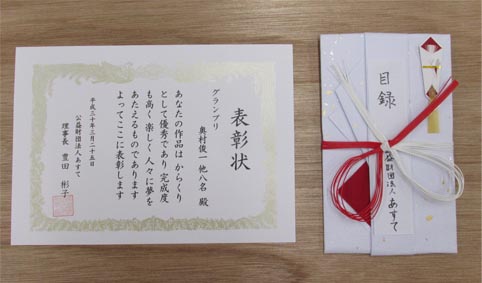 表彰状
グランプリ
奥村俊一 他八名 殿
あなたの作品は からくり
として優秀であり 完成度
も高く 楽しく 人々に夢を
あたえるものであります
よってここに表彰します
平成三十年三月二十五日
公益財団法人あすて
理事長 豊田 彬子
目録
公益財団法人 あすて